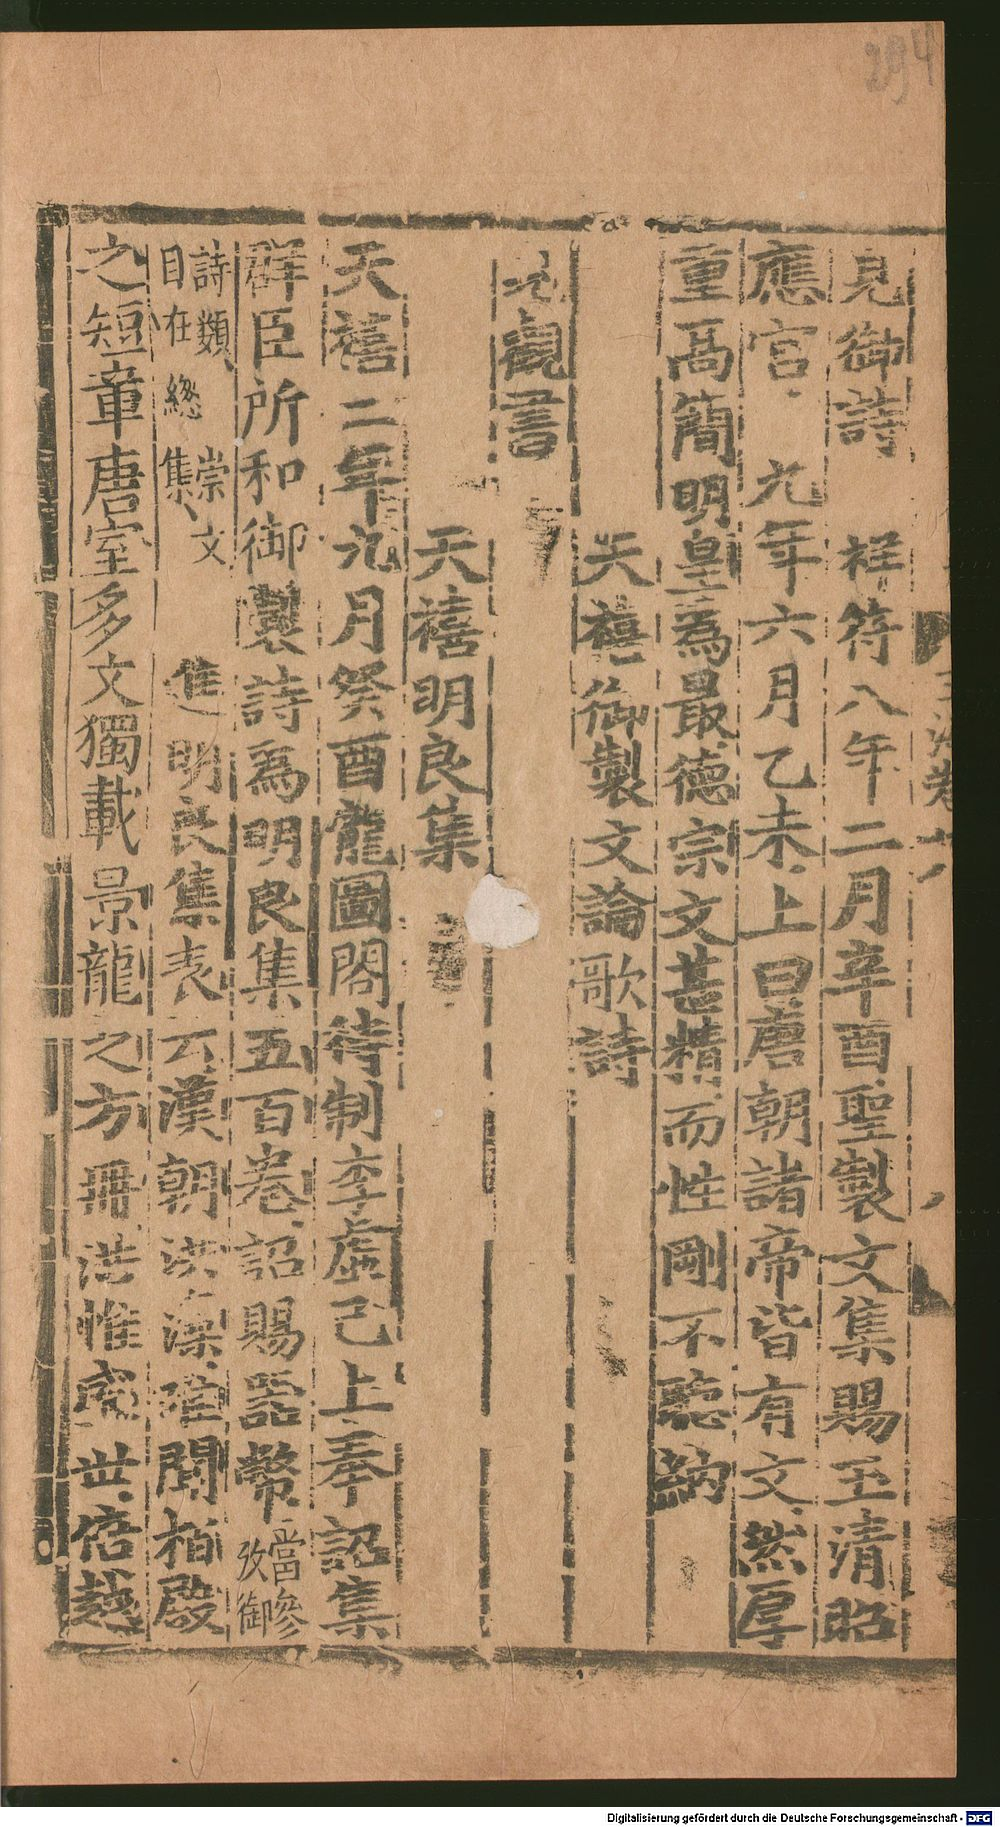 294
見御詩　祥符八年二月辛酉聖製文集賜玉清昭
應宮　九年六月乙未上曰唐朝諸帝皆有文然厚
重高簡明皇為最德宗文甚精而性剛不聽納
天禧御製文論歌詩
見觀書
天禧明良集
天禧二年九月癸酉龍圖閣待制李虛己上奉詔集
群臣所和御製詩爲明良集五百卷詔賜器幣當參
攷御
詩類崇文
目在總集　進明良集表云漢朝洪藻唯聞柏殿
之短章唐室多文獨載景龍之方冊洪惟盛世倍越
Digitalisierung gefördert durch die Deutsche Forschungsgemeinschaft - DFG